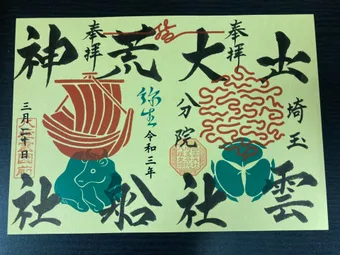 出雲
埼玉
奉拝
大社
分院
結
荒船
弥生
令和三年
奉拝
神社
三月二十日